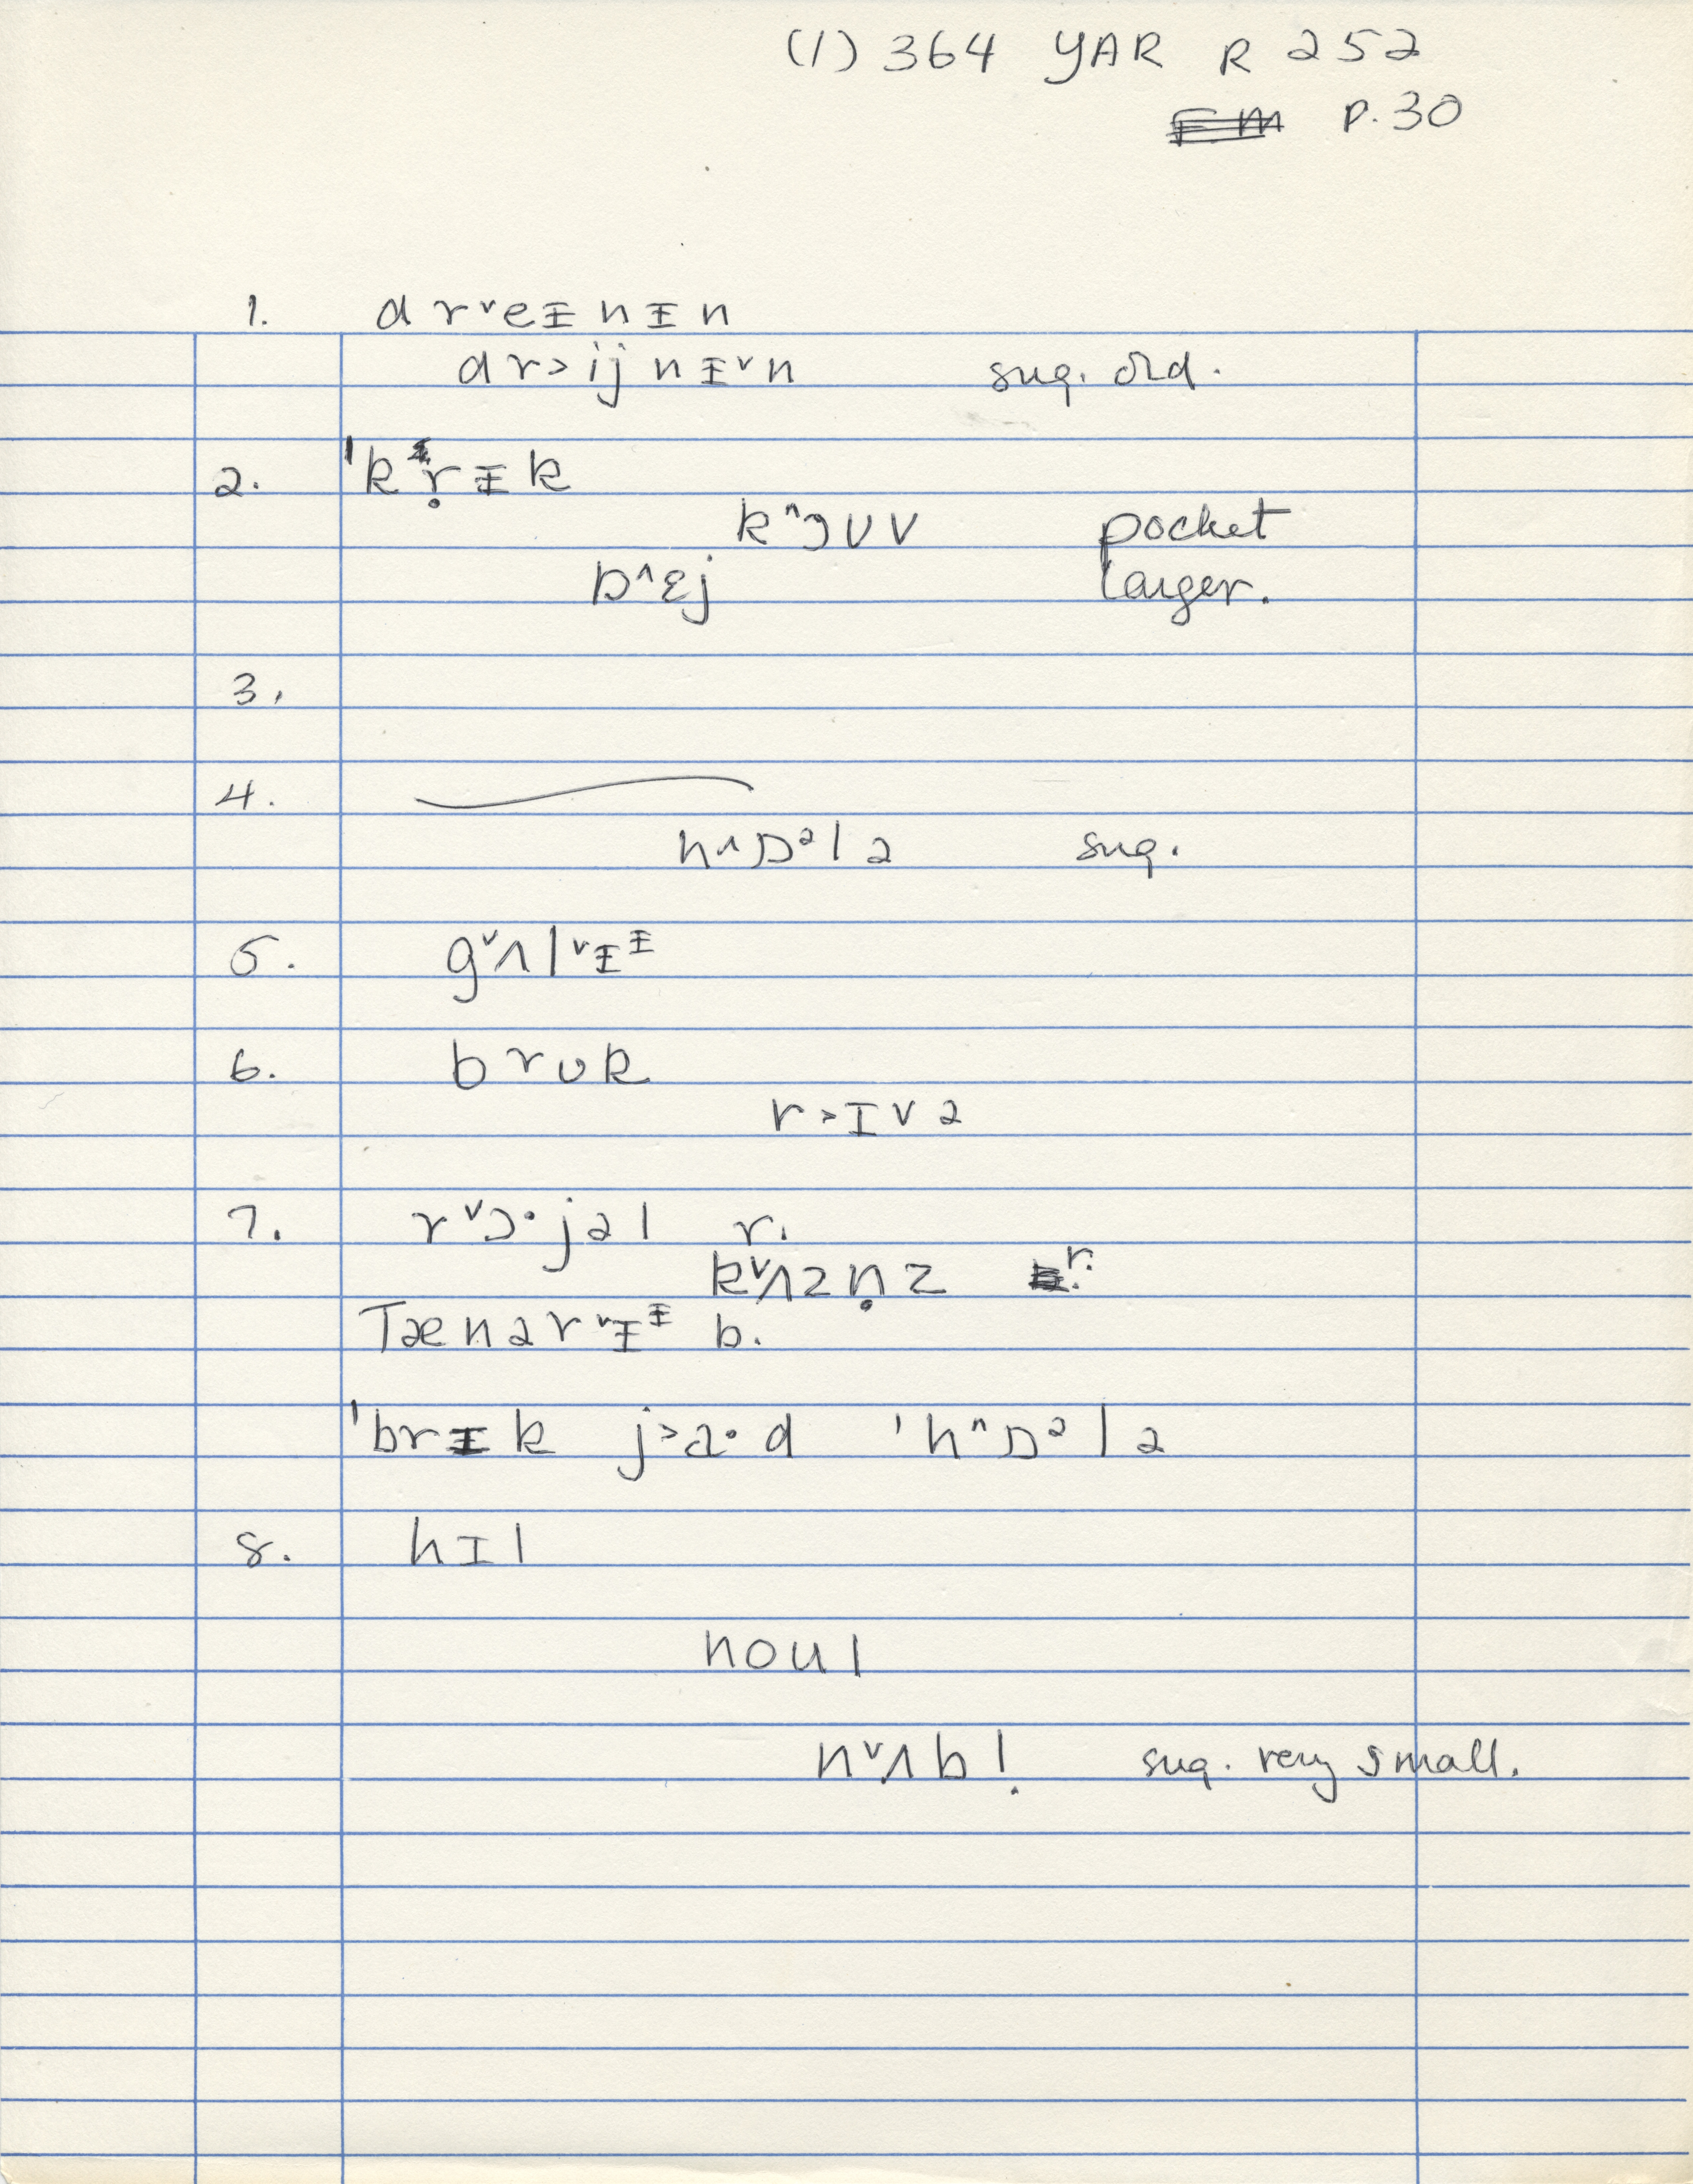 (1) 364 YAR R 252
P. 30
1. d r ˅ e ᵻ n ᵻ n
d r > i j n ᵻ ˅ n sug. old.
2. ˈk r̩ ᵻ k
k ^ ɔ ʊ v pocket
b ^ ɛ j larger.
3.
4.
h ^ ɒ ᵊ l ə sug.
5. g ˅ ʌ l ˅ ᵻ ᶧ
6. b r ʊ k
r > ɪ v ə
7. r ˅ ɔ · j ə l r.
k ˅ ʌ z n̩ z r.
T æ n ə r ˅ ᵻ ᶧ b.
ˈb r ᵻ k j > a · d ˈh ^ ɒ ᵊ l ə
8. h ɪ l
n o u l
n ˅ ʌ b l̩ sug. very small.